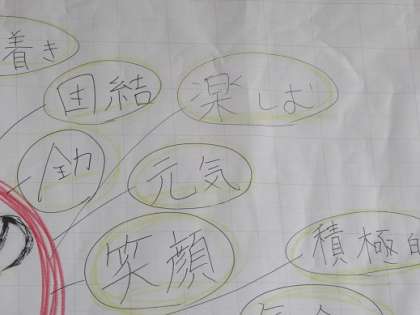 着き
団結
楽しむ
全力
元気
笑顔
積極的